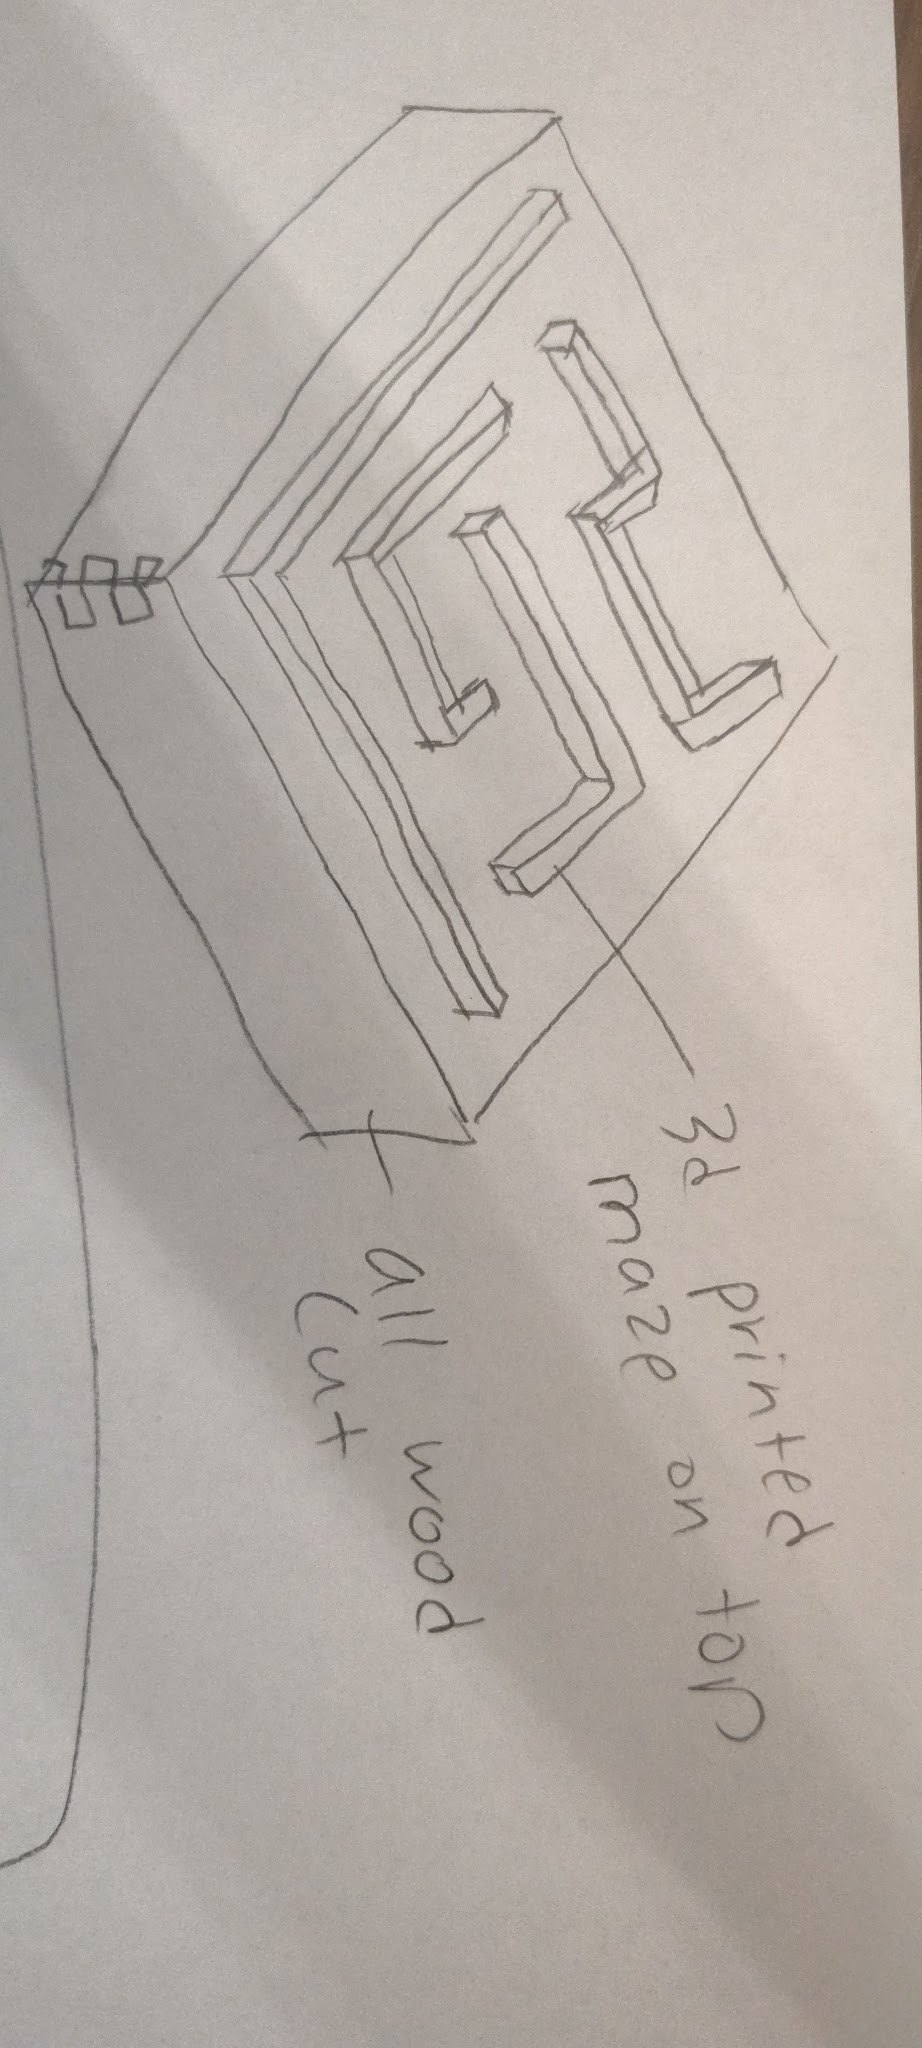 3d printed
maze on top
all wood
cut